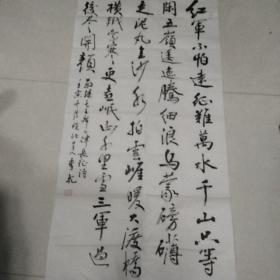 红軍不怕遠征難萬水千山只等
閑五嶺逶迤騰細浪烏蒙磅礴
走泥丸金沙水拍雲崖暖大渡橋
橫鐵索寒更喜岷山千里雪三軍過
後尽開顏